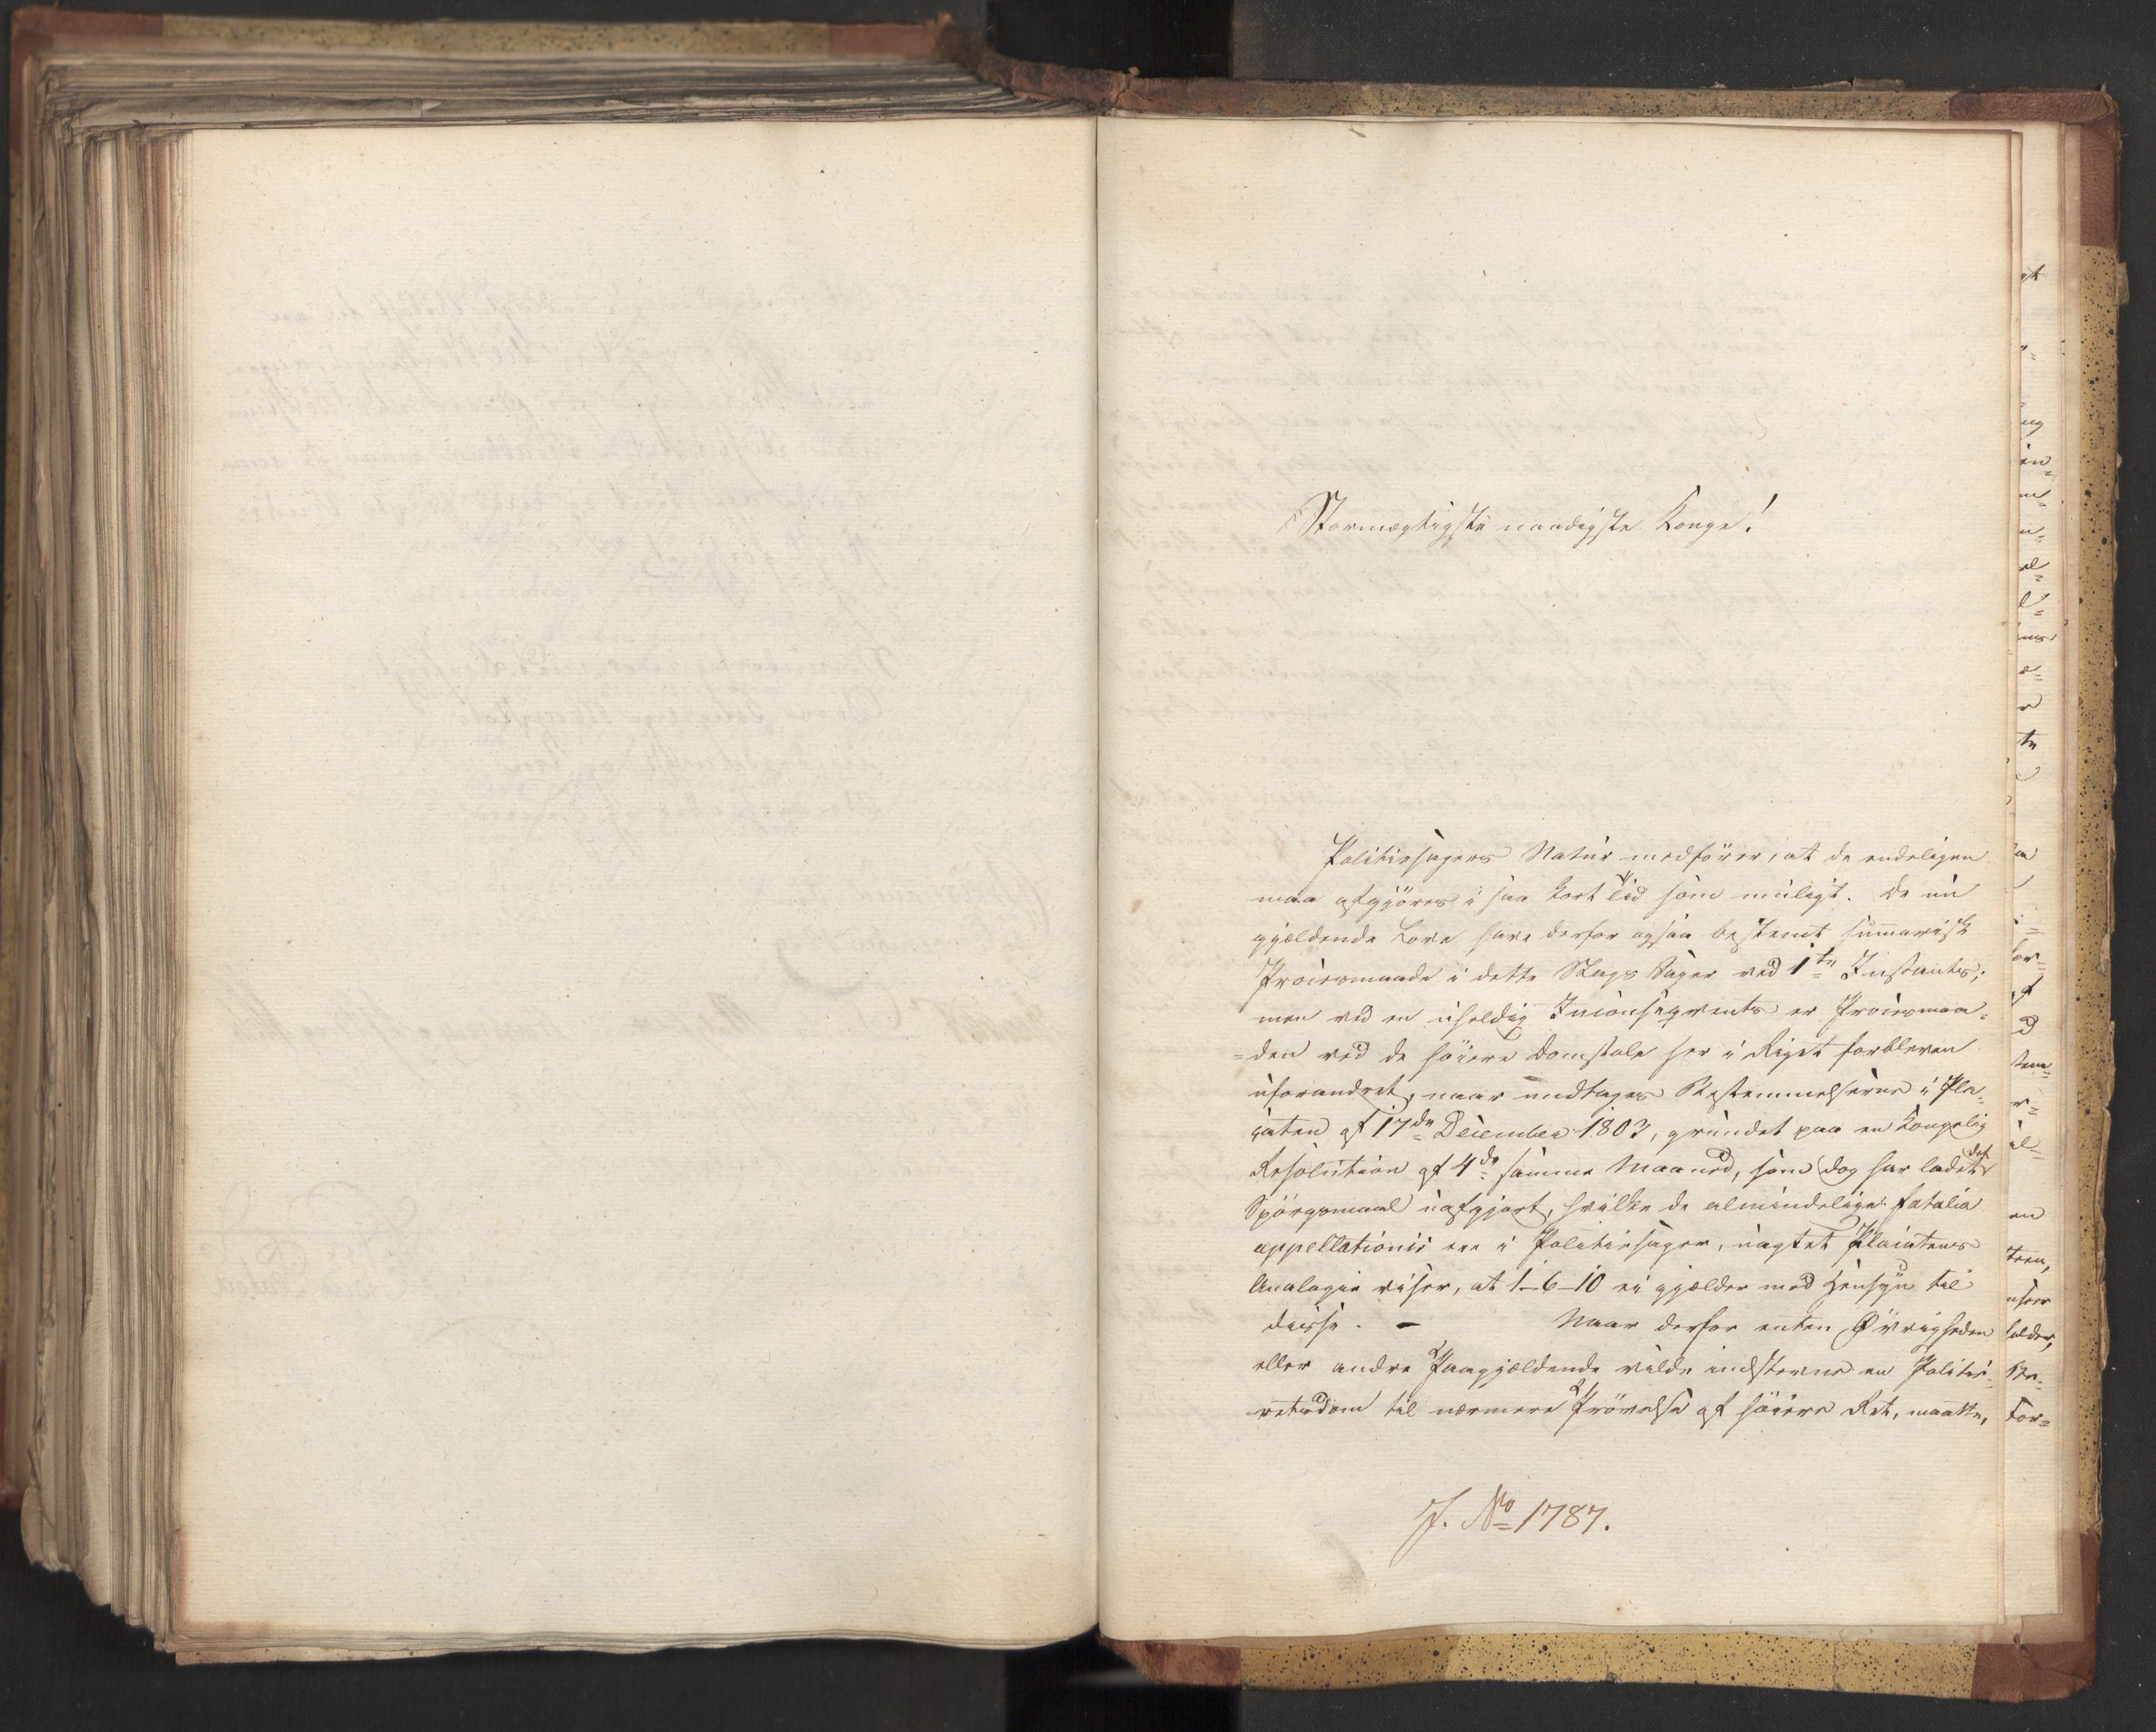 Stormægtigste naadigste Konge!
Politiesagers Natur medfører, at de endeligen
maa afgjöres i saa kort Tid som muligt. De nu
gjældende Love have derfor ogsaa bestemt summarisk
Procesmaade i dette Slags Sager ved 1te Instants;
men ved en uheldig Inconseqvents er Procesmaa-
=den ved de höiere Domstole her i Riget forbleven
uforandret, naar undtages Bestemmelserne i Pla-
caten af 17de December 1803, grundet paa en Kongelig
Resolution af 4de samme Maaned, som dog har ladet det
Spörgsmaal uafgjort, hvilke de almindelige fatalia
appellationis ere i Politiesager, uagtet Placatens
Analogie viser, at 1-6-10 ei gjælder med Hensyn til
disse. - Naar derfor enten Øvrigheden
eller andre Paagjældende vilde indstevne en Politie-
retsdom til nærmere Prövelse af höiere Ret, maatte,
J. No 1787.